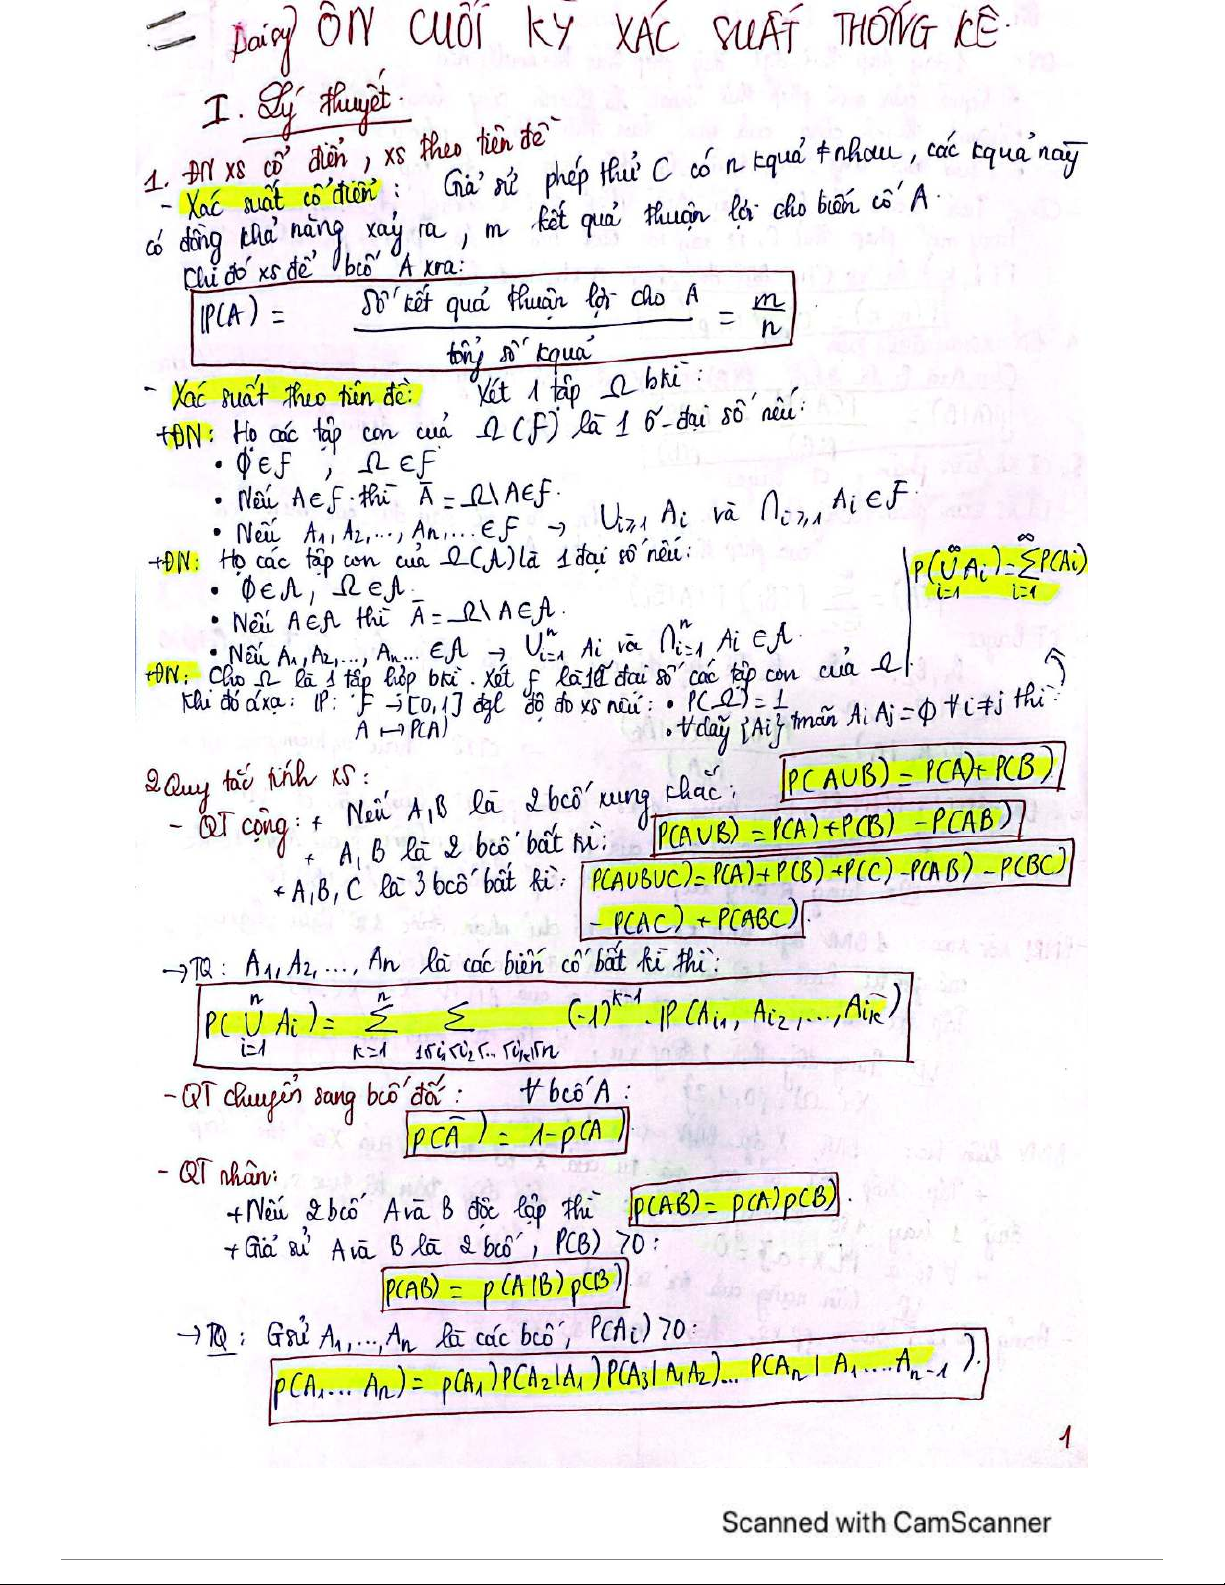 Daisy ÔN CUỐI KỲ XÁC SUẤT THỐNG KÊ.
I. Lý thuyết.
1. ĐN xs cổ điển, xs theo tiên đề
- Xác suất cổ điển: Giả sử phép thử C có n kquả ≠ nhau, các kquả này
có đồng khả năng xảy ra, m kết quả thuận lợi cho biến cố A.
Khi đó xs để bcố A xra:
P(A) = số kết quả thuận lợi cho A / tổng số kquả = m/n
- Xác suất theo tiên đề: Xét 1 tập Ω bkì:
+ĐN: Họ các tập con của Ω (F) là 1 σ-đại số nếu:
• ∅ ∈ F ; Ω ∈ F
• Nếu A ∈ F thì Ā = Ω\A ∈ F.
• Nếu A₁, A₂, ..., Aₙ, ... ∈ F → ∪i≥1 Ai và ∩i≥1 Ai ∈ F.
+ĐN: Họ các tập con của Ω (A) là 1 đại số nếu:
• ∅ ∈ A, Ω ∈ A.
• Nếu A ∈ A thì Ā = Ω\A ∈ A.
• Nếu A₁, A₂, ..., Aₙ... ∈ A → ∪ⁿi=1 Ai và ∩ⁿi=1 Ai ∈ A.
P(∪^∞ i=1 Ai) = Σ^∞ i=1 P(Ai)
+ĐN: Cho Ω là 1 tập hợp bkì. Xét F là 1 σ đại số các tập con của Ω.
Khi đó áxạ: P: F → [0,1] đgl độ đo xs nếu: • P(Ω) = 1
A ↦ P(A)
• ∀ dãy {Ai} tmãn AiAj = ∅ ∀ i ≠ j thì
2 Quy tắc tính xs:
- QT cộng: + Nếu A, B là 2 bcố xung khắc: P(A∪B) = P(A) + P(B)
+ A, B là 2 bcố bất kì: P(A∪B) = P(A) + P(B) - P(AB)
+ A, B, C là 3 bcố bất kì: P(A∪B∪C) = P(A) + P(B) + P(C) - P(AB) - P(BC)
- P(AC) + P(ABC).
→ TQ: A₁, A₂, ..., An là các biến cố bất kì thì:
P(∪ⁿi=1 Ai) = Σⁿk=1 Σ1≤i₁<i₂<...<ik≤n (-1)^k-1 . P(Ai₁, Ai₂, ..., Aik)
- QT chuyển sang bcố đối: ∀ bcố A:
P(Ā) = 1 - P(A).
- QT nhân:
+ Nếu 2 bcố A và B độc lập thì P(AB) = P(A)P(B).
+ Giả sử A và B là 2 bcố, P(B) > 0:
P(AB) = P(A|B) P(B).
→ TQ: Gsử A₁, ..., An là các bcố, P(Ai) > 0:
P(A₁... An) = P(A₁)P(A₂|A₁)P(A₃|A₁A₂)... P(An | A₁....An-1).
1
Scanned with CamScanner